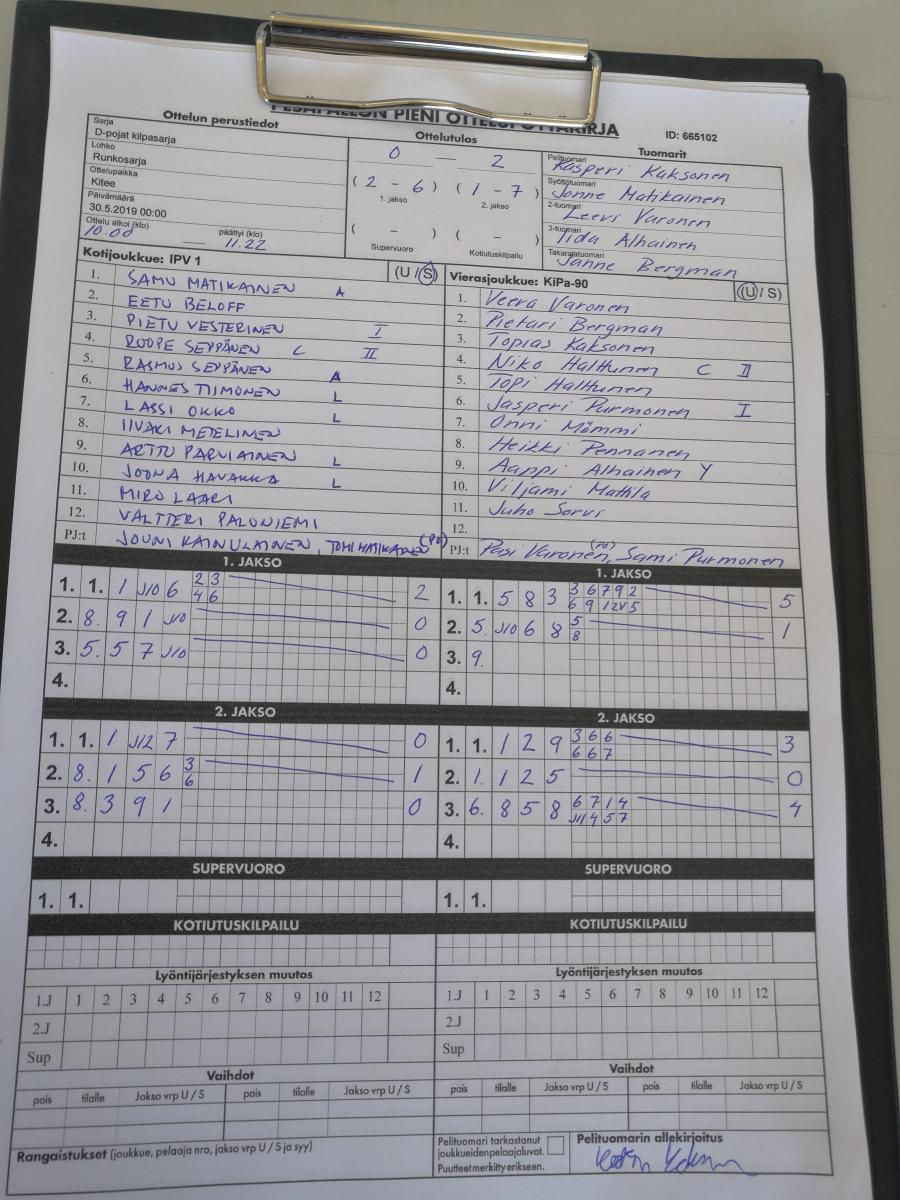 PESÄPALLON PIENI OTTELUPÖYTÄKIRJA
ID: 665102
Ottelun perustiedot
Sarja
D-pojat kilpasarja
Lohko
Runkosarja
Ottelupaikka
Kitee
Päivämäärä
30.5.2019 00:00
Ottelu alkoi (klo) päättyi (klo)
10.00 — 11.22
Ottelutulos
0 — 2
( 2 - 6 ) ( 1 - 7 )
1. jakso 2. jakso
( - ) ( - )
Supervuoro Kotiutuskilpailu
Tuomarit
Pelituomari
Kasperi Kaksonen
Syöttötuomari
Jonne Matikainen
2-tuomari
Leevi Varonen
3-tuomari
Iida Alhainen
Takarajatuomari
Janne Bergman
Kotijoukkue: IPV 1 (U / S)
1. SAMU MATIKAINEN A
2. EETU BELOFF
3. PIETU VESTERINEN I
4. ROOPE SEPPÄNEN C II
5. RASMUS SEPPÄNEN A
6. HANNES TIIMONEN L
7. LASSI OKKO L
8. IIVARI METELINEN
9. ARTTU PARVIAINEN L
10. JOONA HAVUKKA L
11. MIRO LAARI
12. VALTTERI PALONIEMI
PJ:t JOUNI KAINULAINEN, TOMI MATIKAINEN (PJ)
Vierasjoukkue: KiPa-90 (U / S)
1. Veera Varonen
2. Pietari Bergman
3. Topias Kaksonen
4. Niko Halttunen C II
5. Topi Halttunen
6. Jasperi Purmonen I
7. Onni Mömmi
8. Heikki Pennanen
9. Aappi Alhainen Y
10. Viljami Mattila
11. Juho Sorvi
12.
PJ:t Pasi Varonen, Sami Purmonen
1. JAKSO
1. 1. 1 J10 6 2 3 2
4 6
2. 8. 9 1 J10 0
3. 5. 5 7 J10 0
4.
1. JAKSO
1. 1. 5 8 3 3 6 7 9 2 5
6 9 12V 5
2. 5. J10 6 8 5 1
8
3. 9.
4.
2. JAKSO
1. 1. 1 J12 7 0
2. 8. 1 5 6 3 1
6
3. 8. 3 9 1 0
4.
2. JAKSO
1. 1. 1 2 9 3 6 6 3
6 6 7
2. 1. 1 2 5 0
3. 6. 8 5 8 6 7 1 4 4
J11 4 5 7
4.
SUPERVUORO
1. 1.
SUPERVUORO
1. 1.
KOTIUTUSKILPAILU
KOTIUTUSKILPAILU
Lyöntijärjestyksen muutos
1.J 1 2 3 4 5 6 7 8 9 10 11 12
2.J
Sup
Lyöntijärjestyksen muutos
1.J 1 2 3 4 5 6 7 8 9 10 11 12
2.J
Sup
Vaihdot
pois tilalle Jakso vrp U / S pois tilalle Jakso vrp U / S
Vaihdot
pois tilalle Jakso vrp U / S pois tilalle Jakso vrp U / S
Rangaistukset (joukkue, pelaaja nro, jakso vrp U / S ja syy)
Pelituomari tarkastanut
joukkueiden pelaajaluvat.
Puutteet merkitty erikseen.
Pelituomarin allekirjoitus